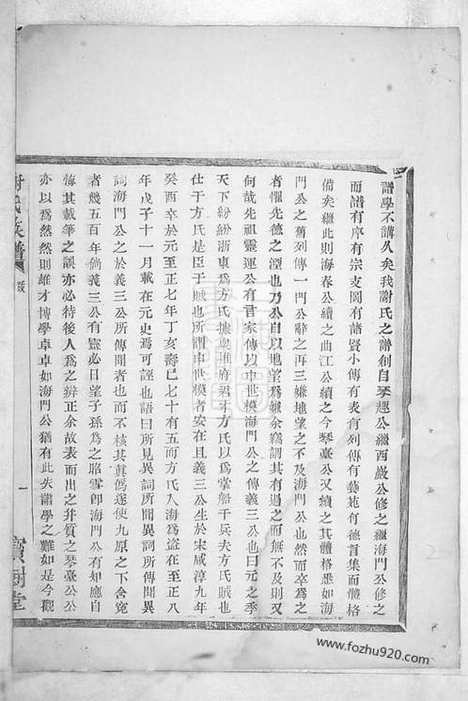 譜學不講久矣我謝氏之譜創自琴趣公繼西巖公修之繼海門公修之
而譜有序有宗支圖有諸賢小傳有表有藝苑有德言集而體格
備矣繼此則海春公續之曲江公續之今琴臺公又續之其體格悉如海
門公之舊列傳一門公之再三嫌地望之不及海門公也然而卒為之
者懼先德之湮也乃公自以地望為嫌余竊謂其有過之而無不及則
何哉先祖靈運公有言家傳以中世模海門公之傳義三公也曰元之季
天下紛紛浙東為方氏據叟推府君才方氏以為掌船千兵夫方氏賊也
仕于方氏是臣于賊也所謂中世模者安在且義三公生於宋咸淳九年
癸酉卒於元至正七年丁亥壽已七十有五而方氏入海為盜在至正八
年戊子十一月載在元史焉可誣也語曰所見異詞所聞異詞所傳聞異
詞海門公之於義三公所傳聞者也而不核其眞僞遂使九原之下含寃
者幾五百年倘義三公有靈必日望子孫為之昭雪卽海門公有靈應自
悔其載筆之誤亦必待後人為之辨正余故表而出之幷質之琴臺公公
亦以為然然則雄才博學卓卓如海門公猶有此失譜學之難如是今觀
謝氏族譜
跋
一
寶樹堂
www.fozhu920.com